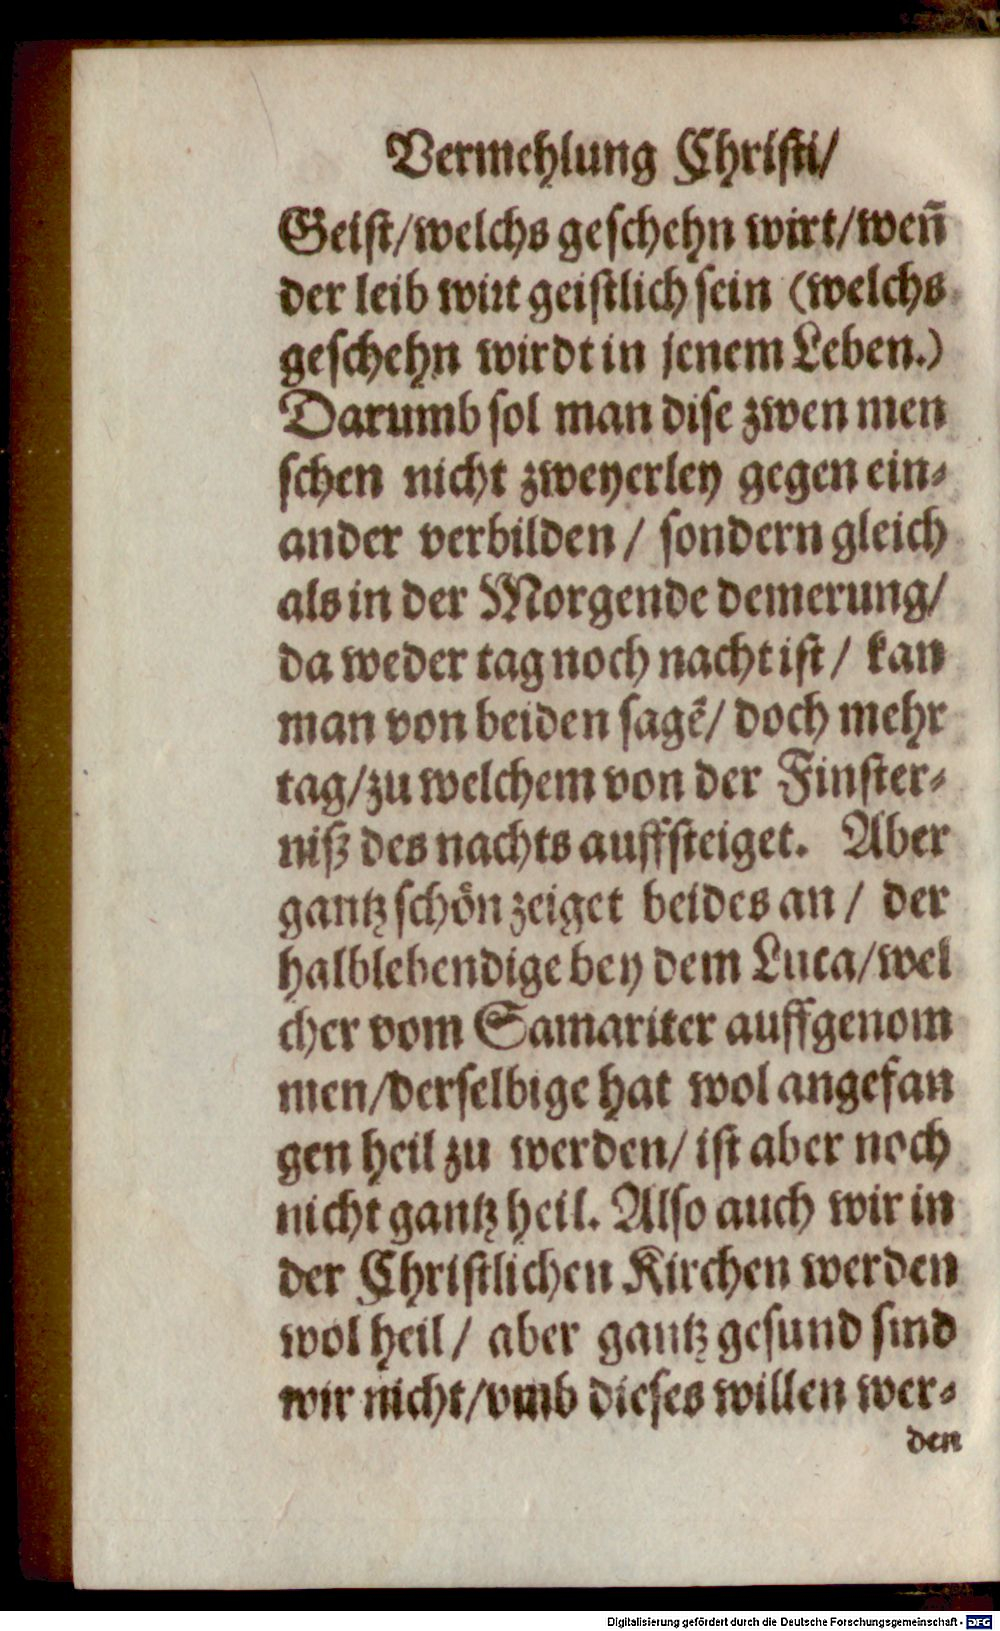 Vermehlung Christi/
Geist/welchs geschehn wirt/weñ
der leib wirt geistlich sein (welchs
geschehn wirdt in jenem Leben.)
Darumb sol man dise zwen men
schen nicht zweyerley gegen ein⸗
ander verbilden / sondern gleich
als in der Morgende demerung/
da weder tag noch nacht ist / kan
man von beiden sagẽ/ doch mehr
tag/zu welchem von der Finster⸗
niß des nachts auffsteiget. Aber
gantz schön zeiget beides an / der
halblebendige bey dem Luca/wel
cher vom Samariter auffgenom
men/derselbige hat wol angefan
gen heil zu werden/ ist aber noch
nicht gantz heil. Also auch wir in
der Christlichen Kirchen werden
wol heil / aber gantz gesund sind
wir nicht/vmb dieses willen wer⸗
den
Digitalisierung gefördert durch die Deutsche Forschungsgemeinschaft - DFG